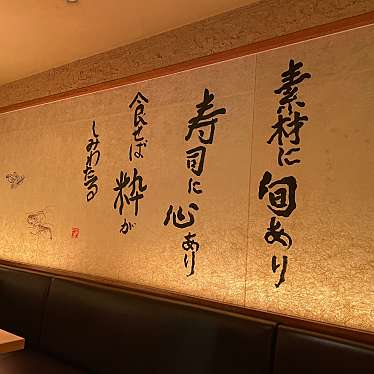 素材に旬あり
寿司に心あり
食せば粋が
しみわたる